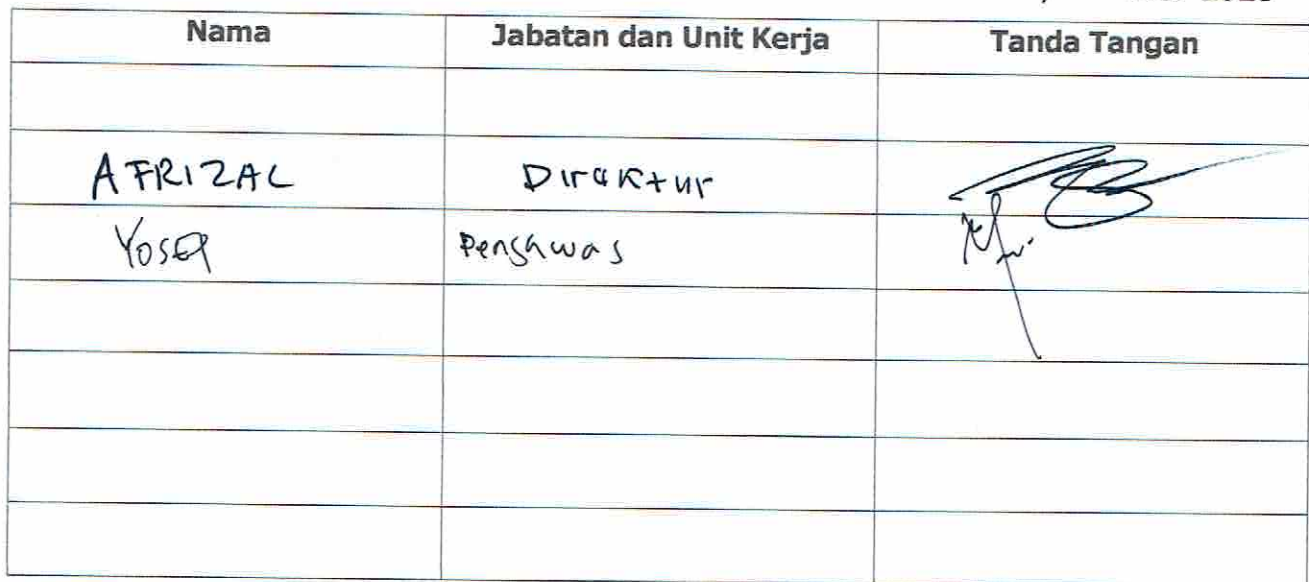 Nama Jabatan dan Unit Kerja Tanda Tangan
AFRIZAL Direktur
Yosep Pengawas